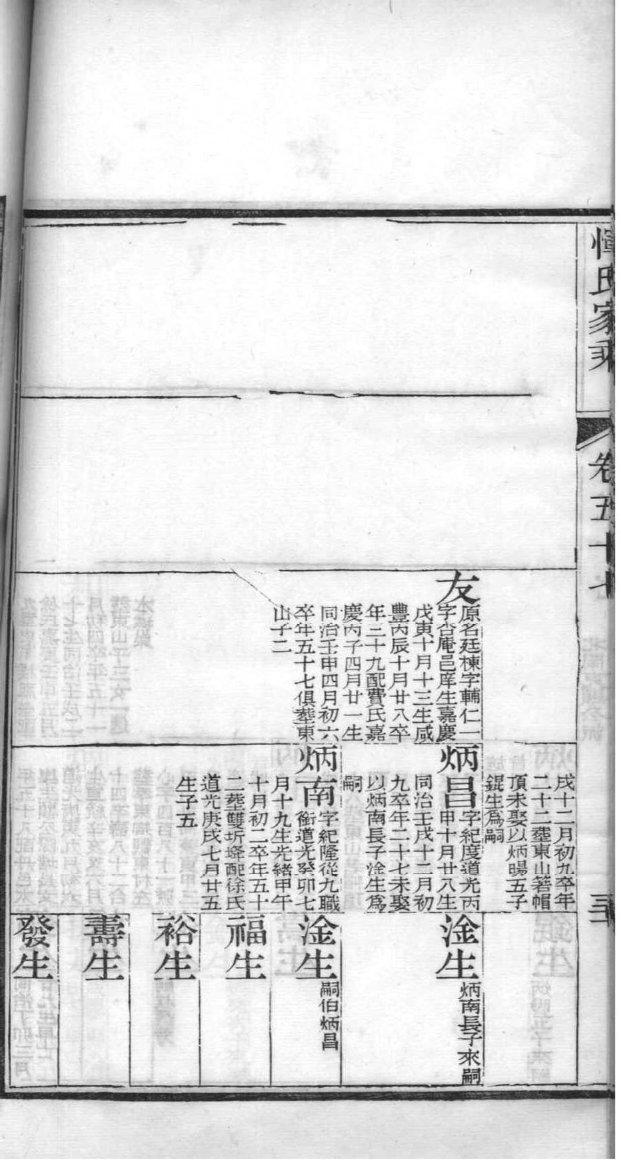 惲氏家乘
卷五十七
三
友
原名廷棟字輔仁一
字杏庵邑庠生嘉慶
戊寅十月十三生咸
豐丙辰十月廿八卒
年三十九配費氏嘉
慶丙子四月廿一生
同治壬申四月初六
卒年五十七俱塟東
山子二
戌十二月初九卒年
二十二塟東山著帽
頂未娶以炳暘五子
錕生爲嗣
炳昌
字紀度道光丙
申十月廿八生
同治壬戌十二月初
九卒年二十七未娶
以炳南長子淦生爲
嗣
炳南
字紀隆從九職
銜道光癸卯七
月十九生光緒甲午
十月初二卒年五十
二塟雙圻塋配徐氏
道光庚戌七月廿五
生子五
淦生
炳南長子來嗣
淦生
嗣伯炳昌
福生
裕生
壽生
發生